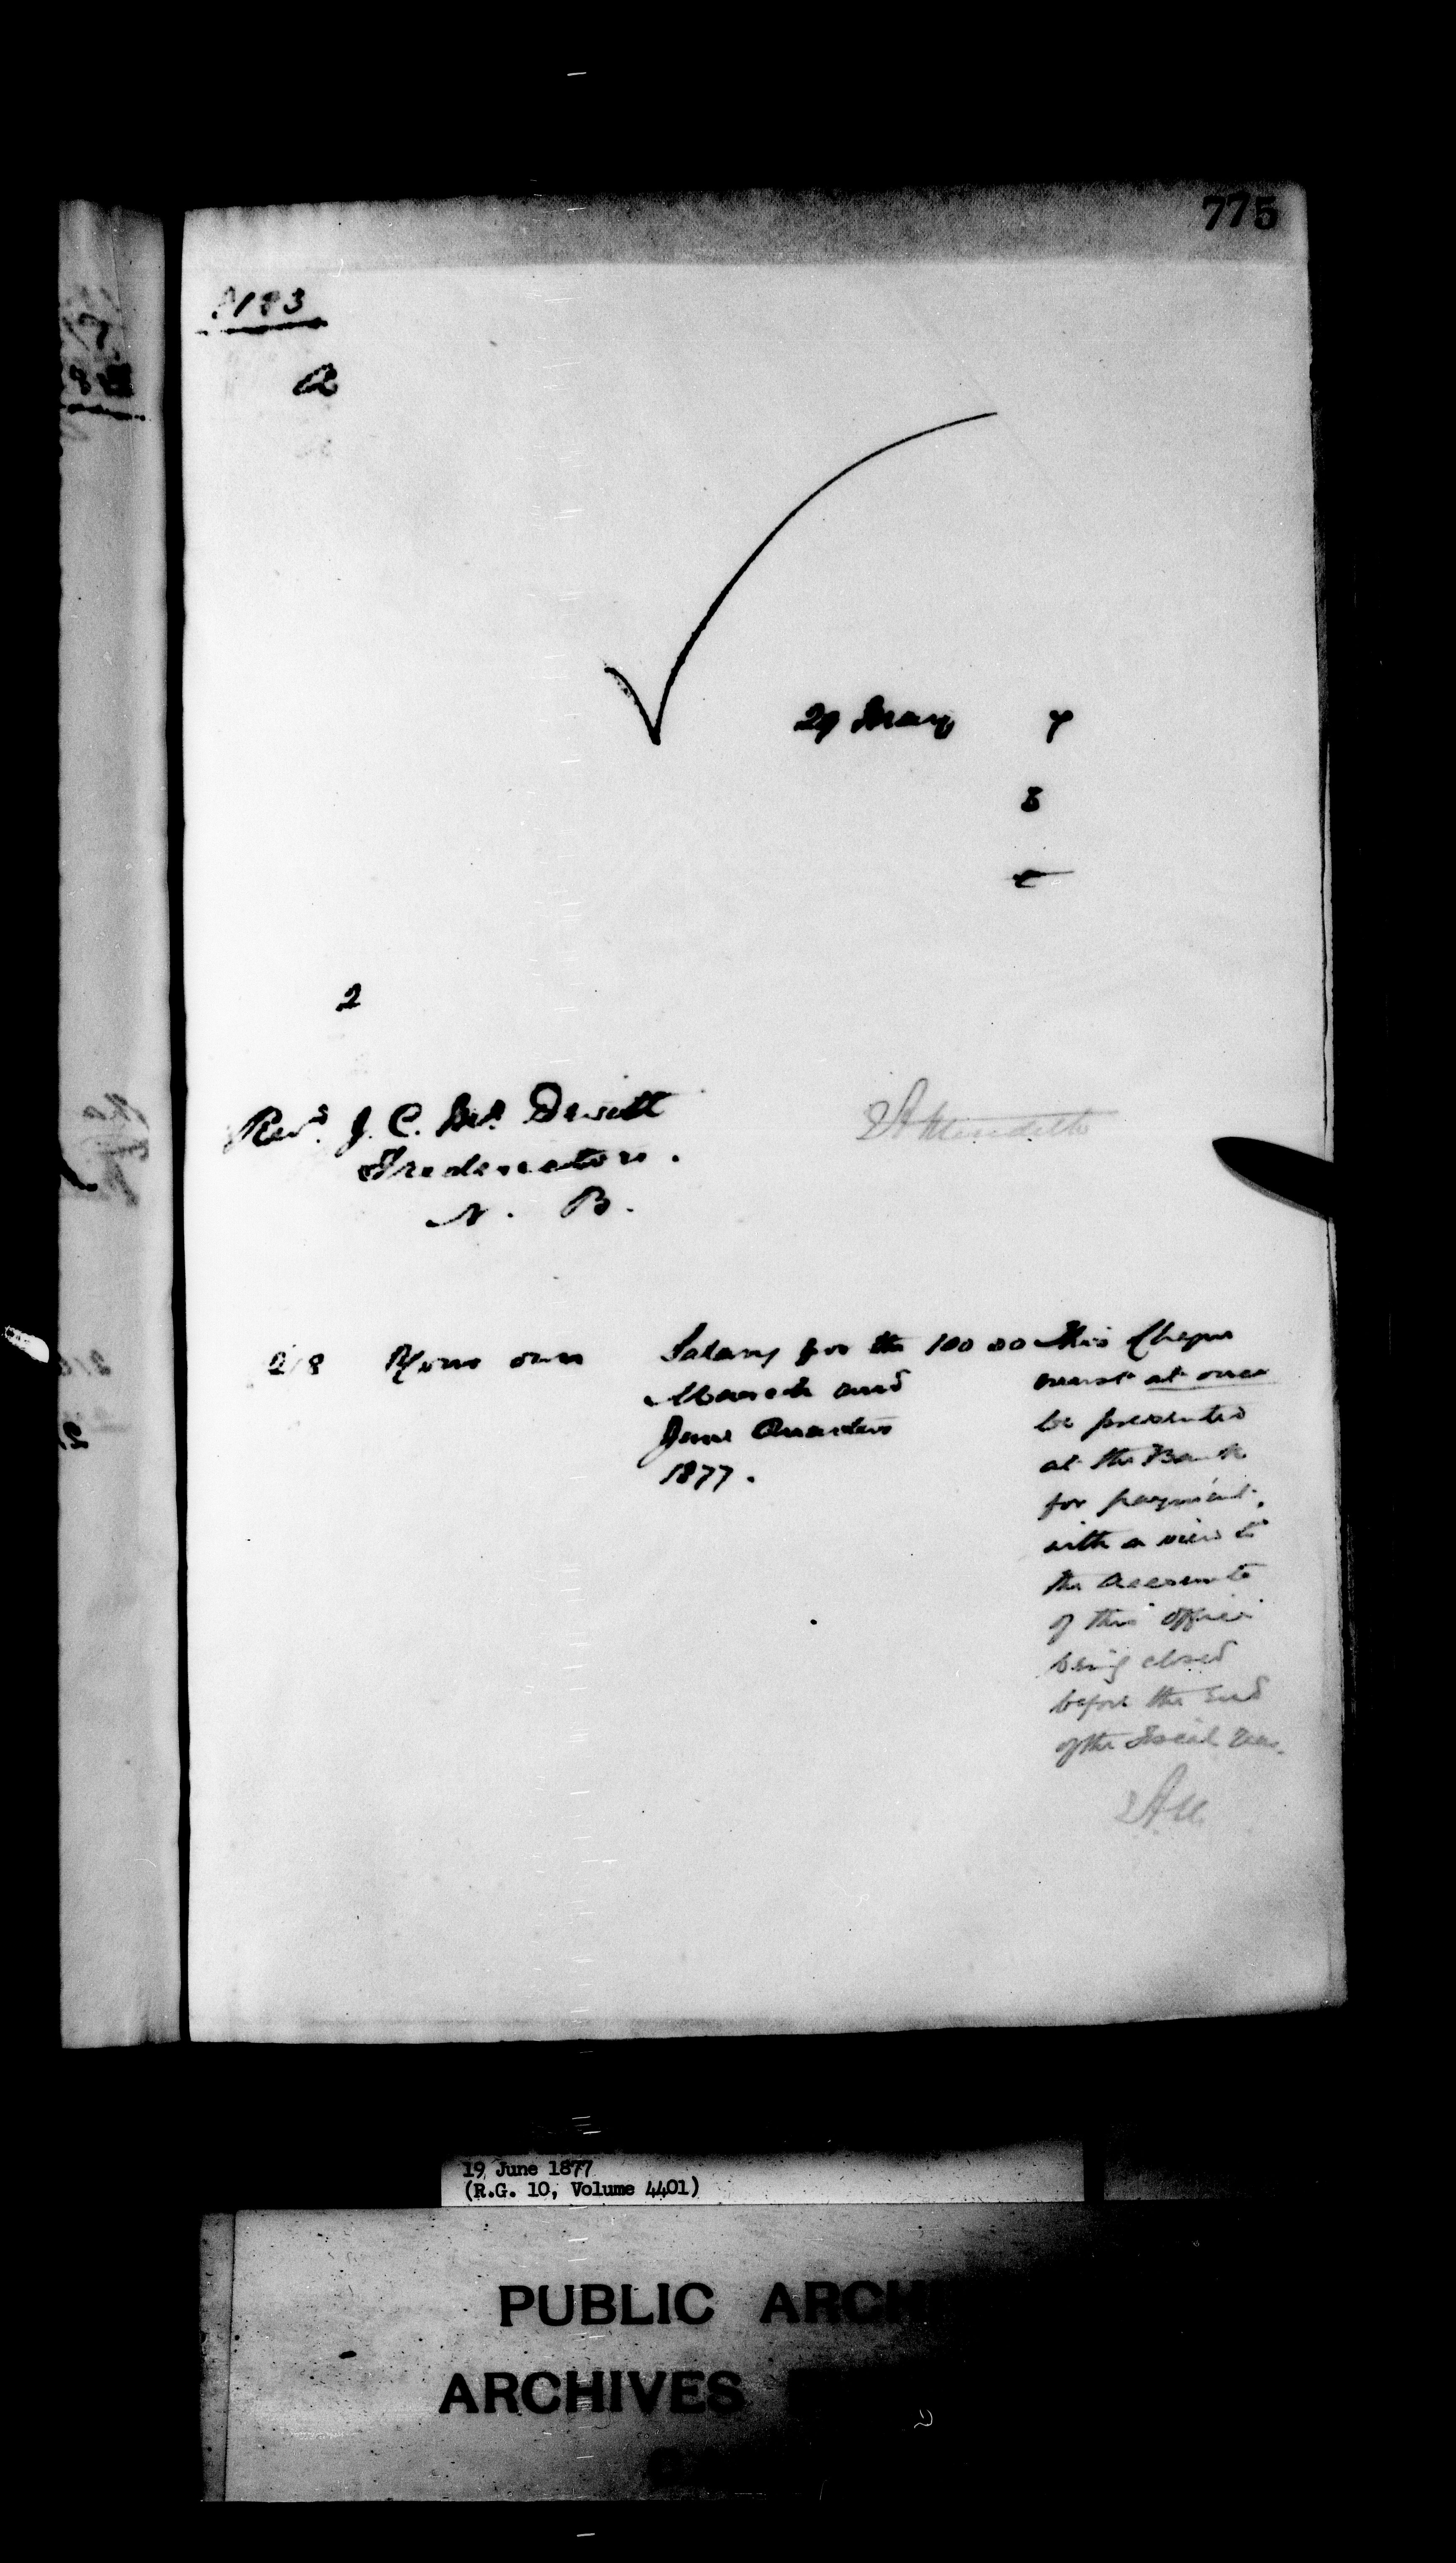 775
29 May 7
2
Revd. J. C. McDevitt
Fredericton.
N. B.
218 Your own Salary for the 100 00 This Cheque
March and must at once
June Quarters be presented
1877. at the Bank
for payment,
with a view to
the accounts
of this office
being closed
before the End
of the Fiscal Year.
19 June 1877
(R.G. 10, Volume 4401)
PUBLIC ARCHI
ARCHIVES